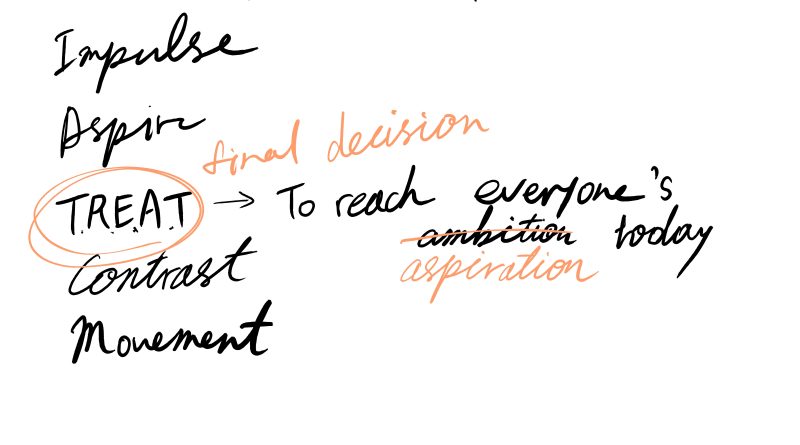 Impulse
Aspire
final decision
T.R.E.A.T → To reach everyone's
ambition today
aspiration
Contrast
Movement